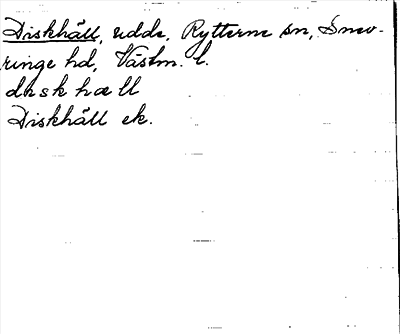 Diskhäll, udde, Rytterne sn, Snev-
ringe hd, Västm. l.
disk hæll
Diskhäll ek.